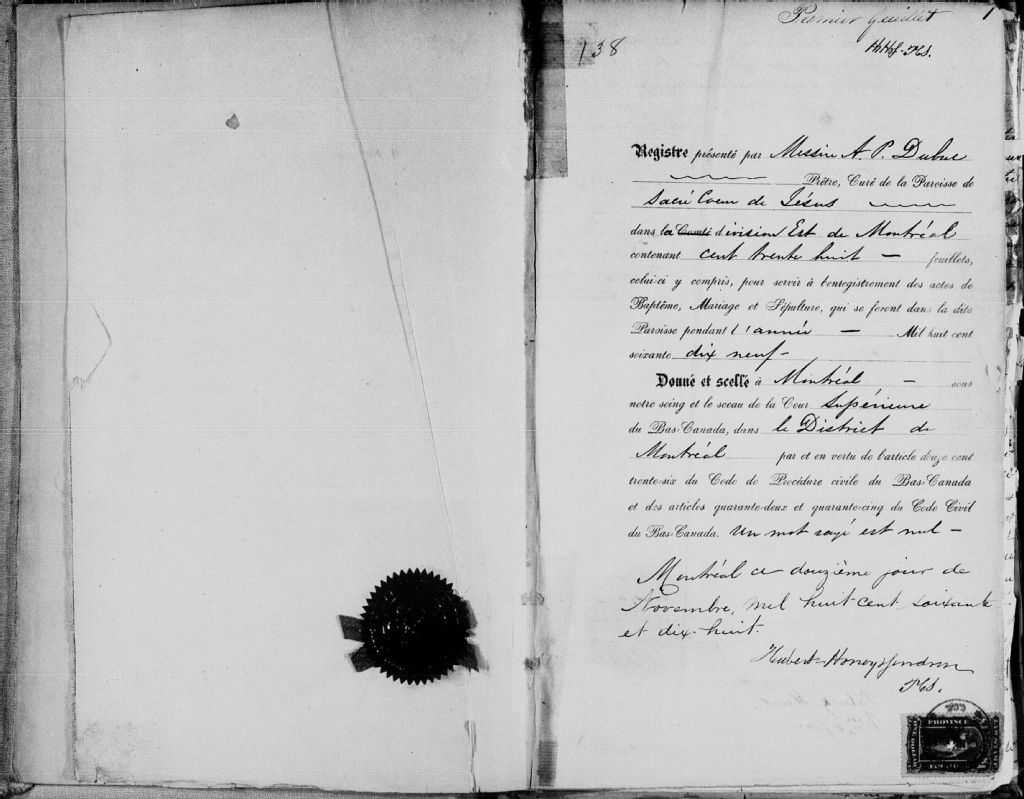 Premier feuillet 1
138
HHG. PCS.
Registre présenté par Messire A. P. Dubuc
Prêtre, Curé de la Paroisse de
Sacré Coeur de Jésus
dans la Comté division Est de Montréal
contenant cent trente huit — feuillets,
celui-ci y compris, pour servir à l'enregistrement des actes de
Baptême, Mariage et Sépulture, qui se feront dans la dite
Paroisse pendant l'année — Mil huit cent
soixante dix neuf -
Donné et scellé à Montréal — sous
notre seing et le sceau de la Cour Supérieure
du Bas-Canada, dans le District de
Montréal par et en vertu de l'article douze cent
trente-six du Code de Procédure civile du Bas-Canada
et des articles quarante-deux et quarante-cinq du Code Civil
du Bas-Canada. Un mot rayé est nul —
Montréal ce douzième jour de
Novembre, mil huit cent soixante
et dix-huit.
Hubert Honey Gendron
PCS.
PROVINCE